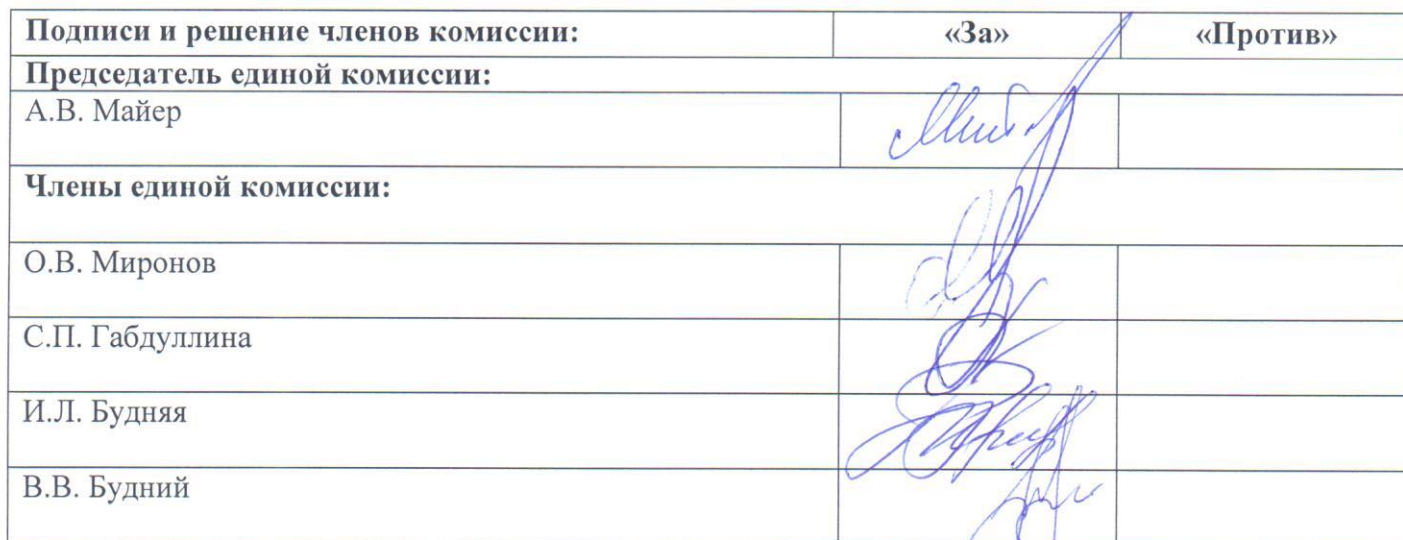 Подписи и решение членов комиссии: «За» «Против»
Председатель единой комиссии:
А.В. Майер
Члены единой комиссии:
О.В. Миронов
С.П. Габдуллина
И.Л. Будняя
В.В. Будний